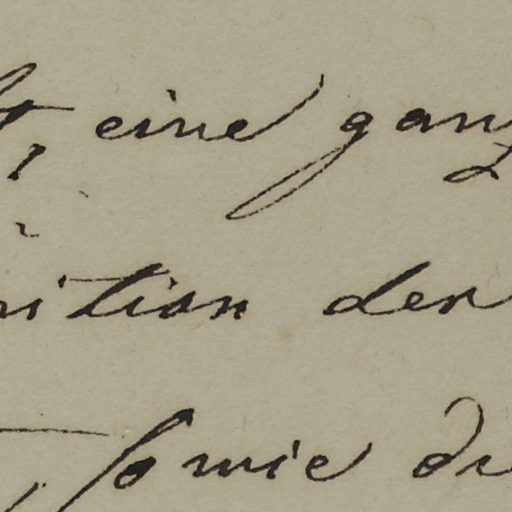 t, eine ganz
ition der
, sowie di